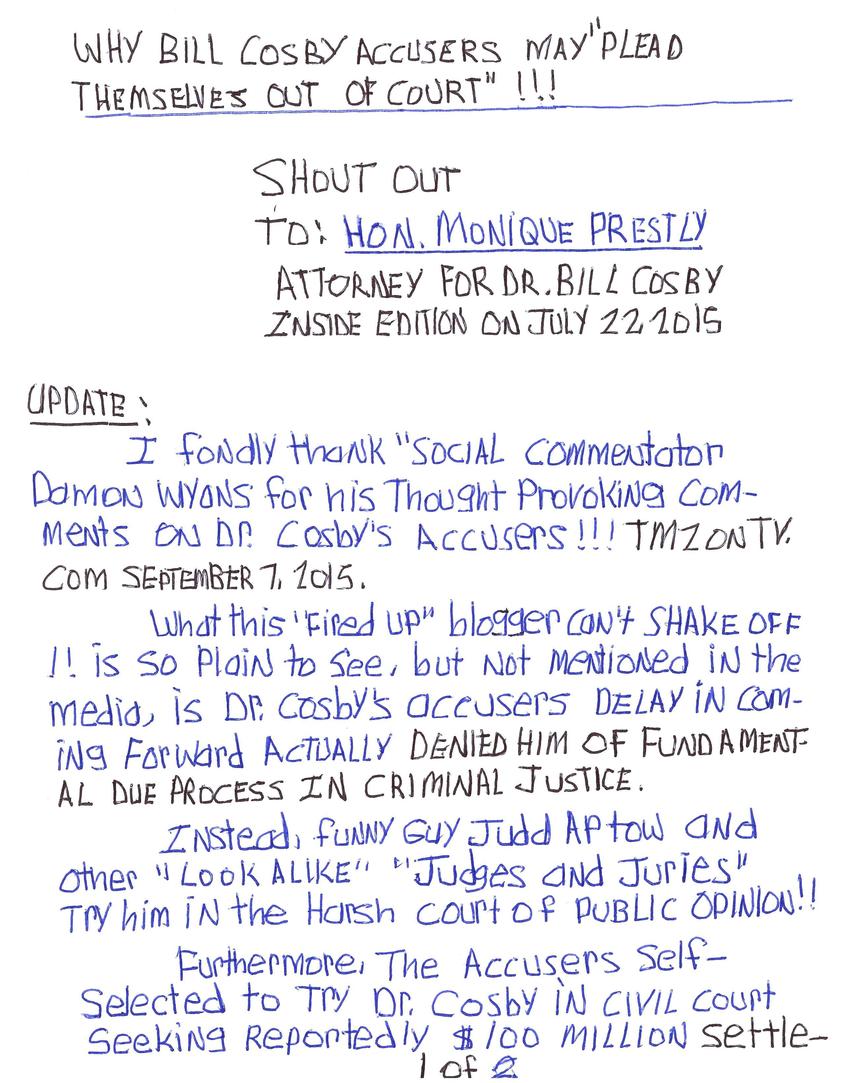 WHY BILL COSBY ACCUSERS MAY "PLEAD
THEMSELVES OUT OF COURT" !!!
SHOUT OUT
TO: HON. MONIQUE PRESTLY
ATTORNEY FOR DR. BILL COSBY
INSIDE EDITION ON JULY 22, 2015
UPDATE:
I fondly thank "SOCIAL Commentator
Damon WYANS for his Thought Provoking Com-
ments ON DR. Cosby's Accusers!!! TMZONTV.
COM SEPTEMBER 7, 2015.
What this "Fired UP" blogger CAN'T SHAKE OFF
!! is so Plain to See, but Not Mentioned in the
media, is DR. Cosby's accusers DELAY IN COM-
ING Forward ACTUALLY DENIED HIM OF FUNDAMENT-
AL DUE PROCESS IN CRIMINAL JUSTICE.
INstead, fuNNY GUY Judd APtow AND
other "LOOK ALIKE" "Judges and Juries"
TRY him in the Harsh court of PUBLIC OPINION!!
Furthermore, The Accusers Self-
Selected to TRY DR. COSBY IN CIVIL COURT
Seeking REPORTEDLY $100 MILLION settle-
1 of 2